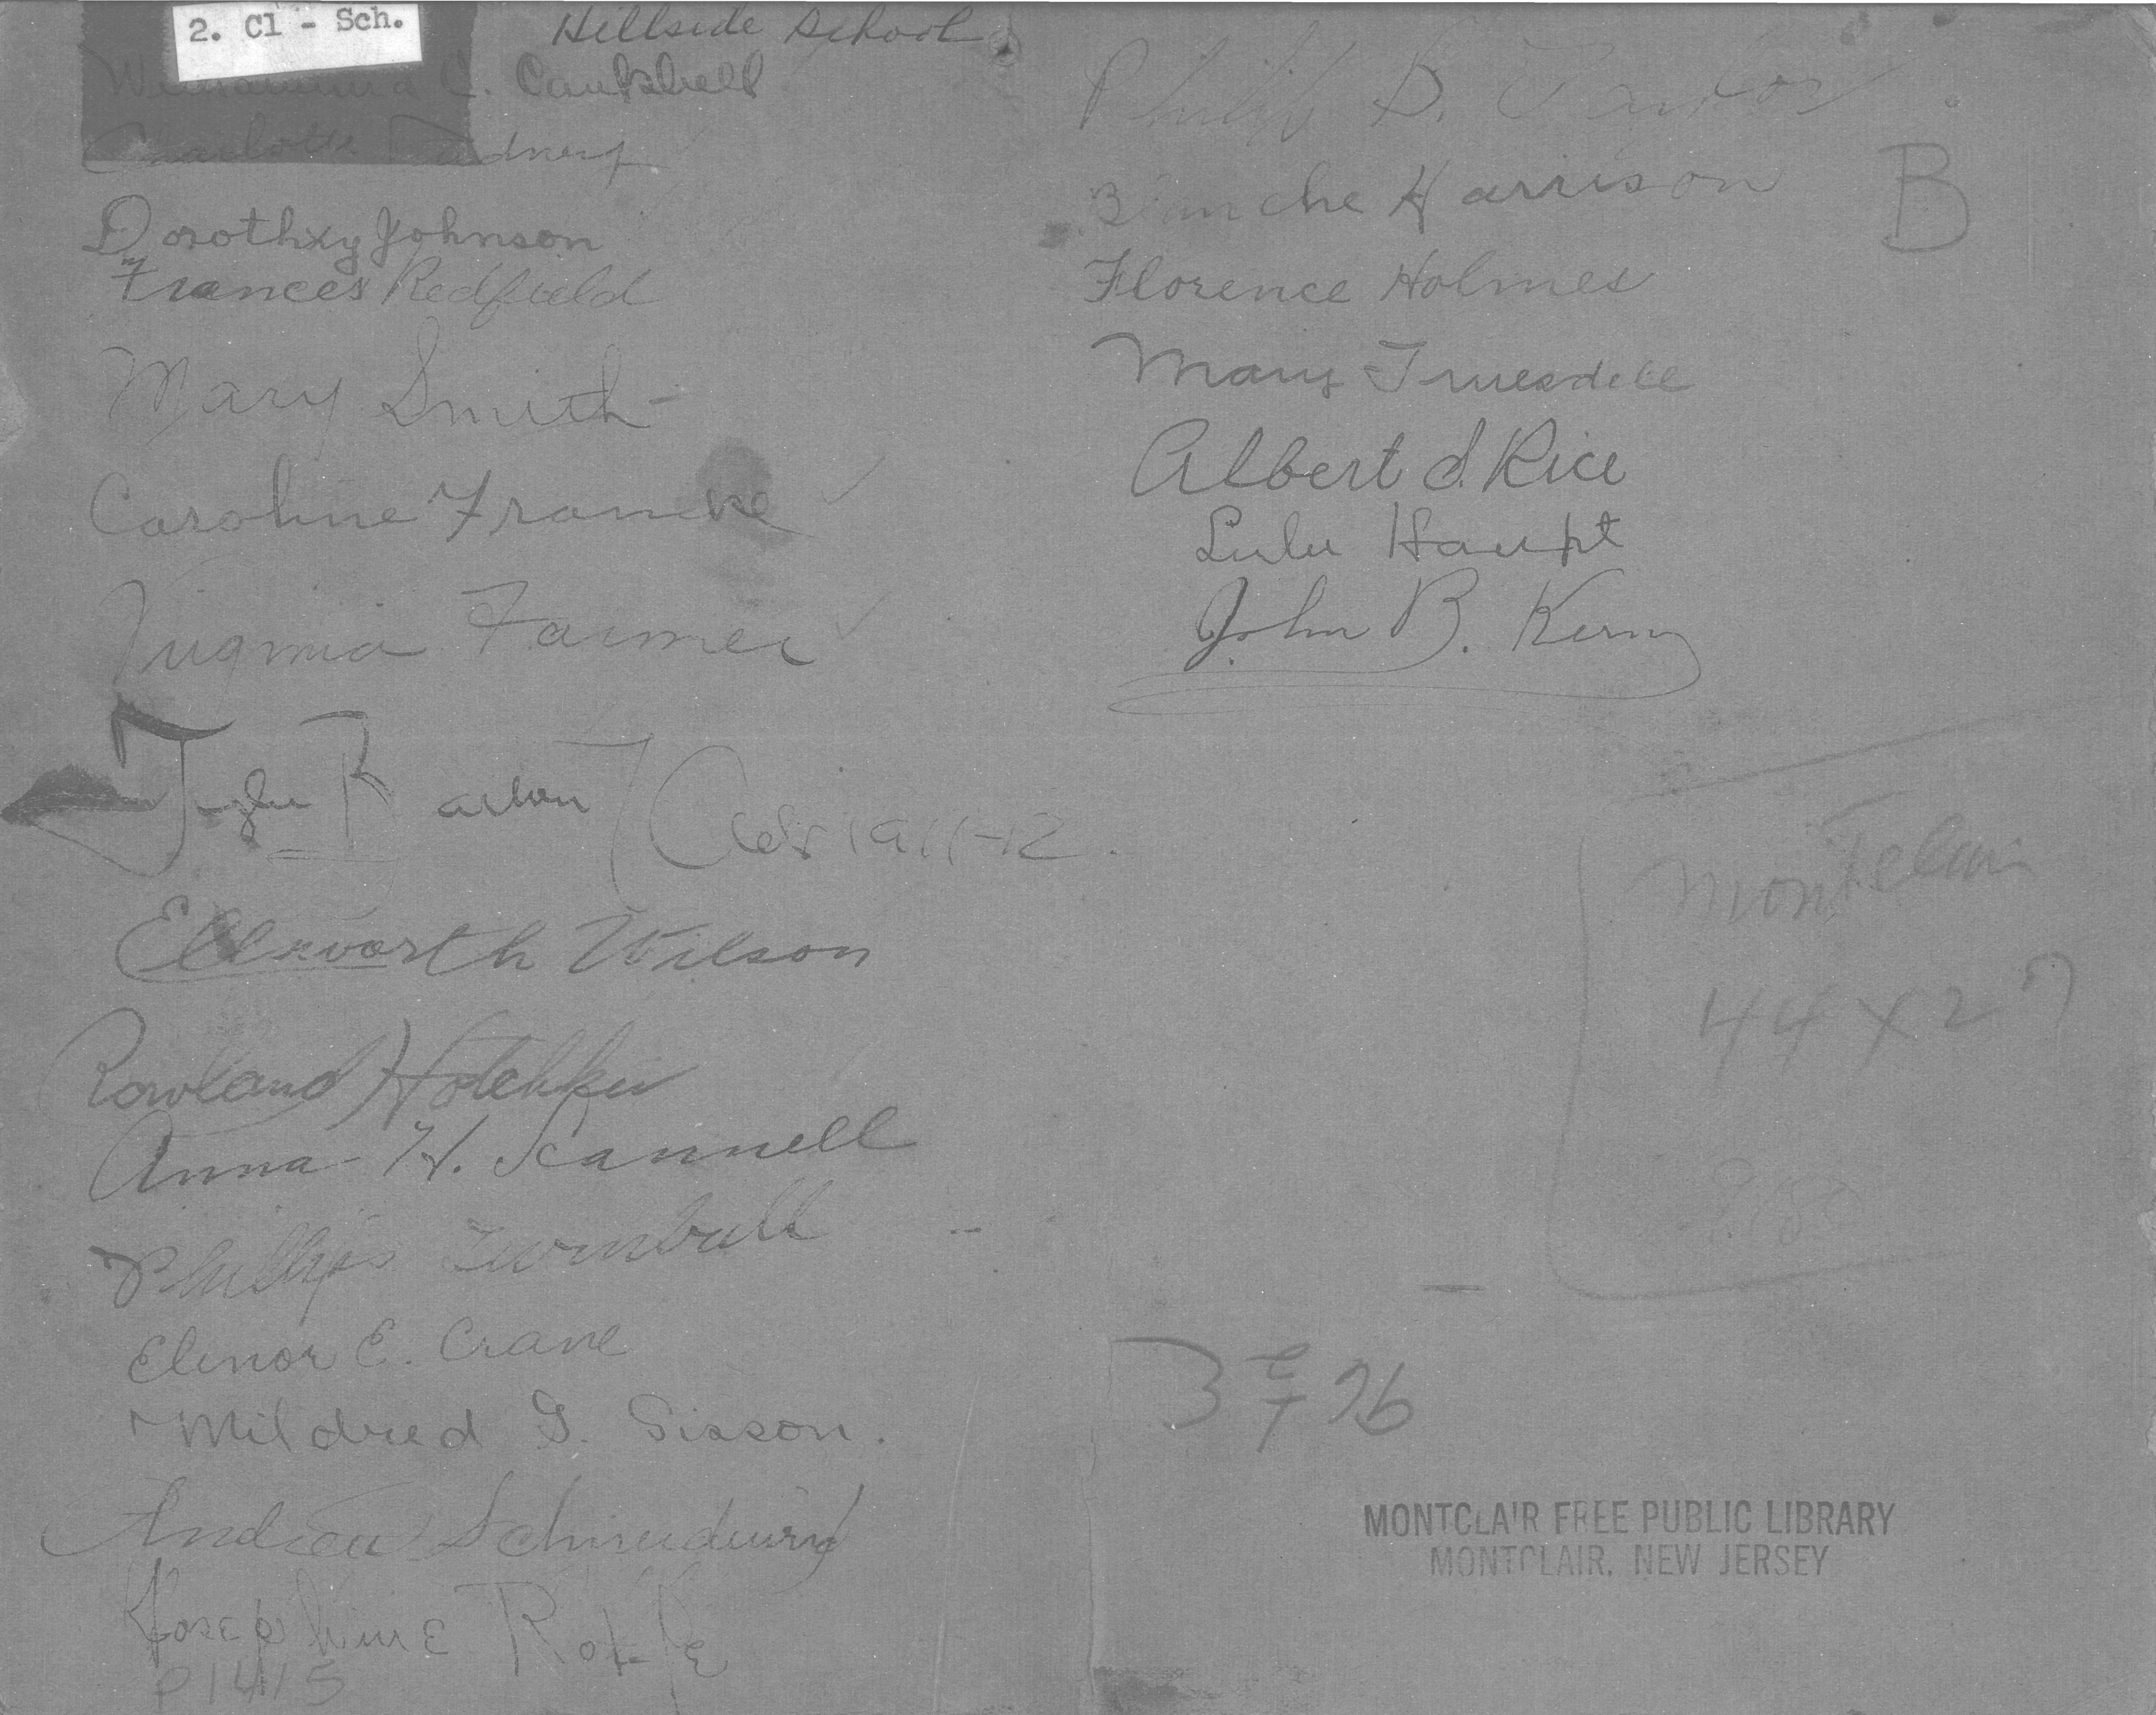 2. Cl - Sch.
Hillside School
C. Campbell
Charlotte
Dorothxy Johnson
Frances Redfield
Mary Smith
Caroline Francke
Virginia Farmer
1911-12.
Ellsworth Wilson
Rowland Hotchkiss
Anna H. Scannell
Phillips Turnbull
Elinor E. Crane
Mildred G. Sisson.
Andrew
Josephine Rolfe
P1415
Philip B. Taylor
Blanche Harrison
B
Florence Holmes
Mary Truesdell
Albert S. Rice
Lulu Haupt
John B. Kerny
Montclair
44 x 27
MONTCLAIR FREE PUBLIC LIBRARY
MONTCLAIR, NEW JERSEY